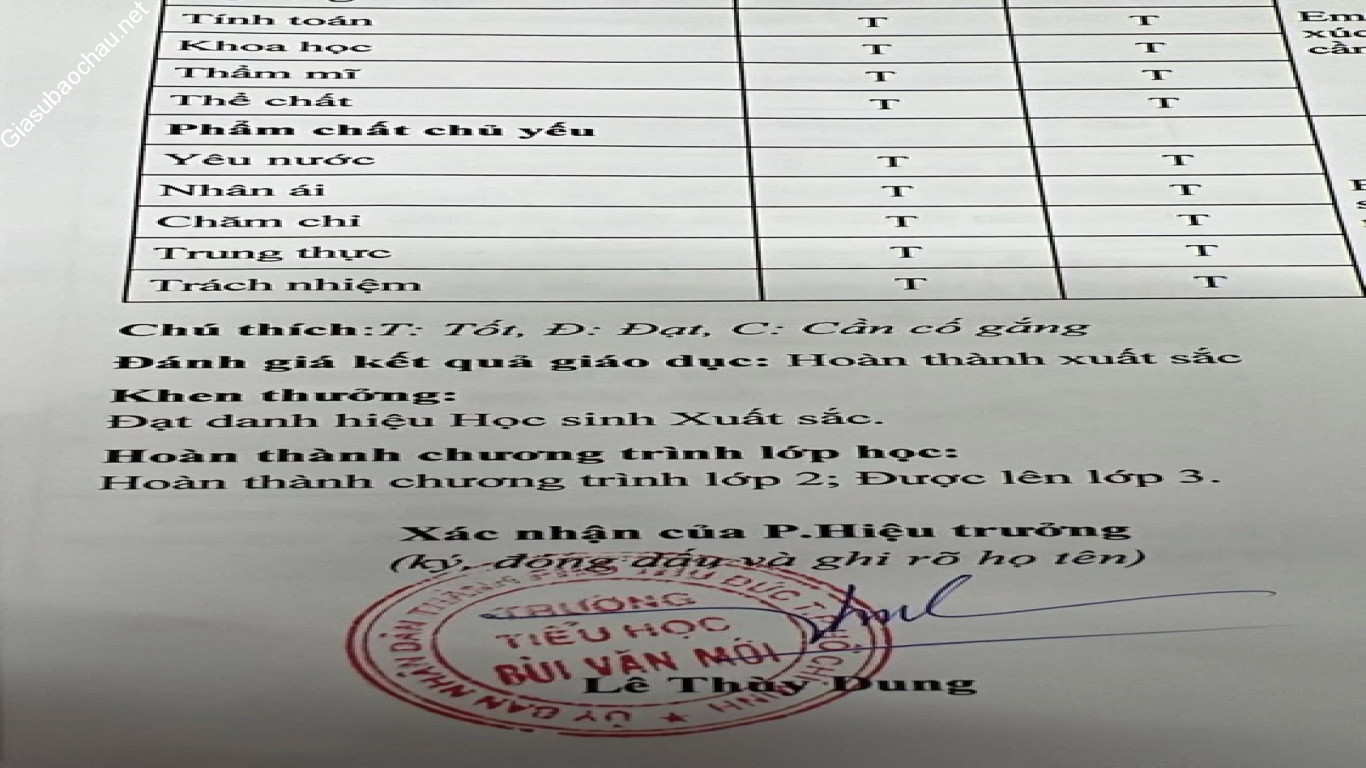 Giasubaochau.net
Tính toán T T Em
Khoa học T T xúc
Thẩm mĩ T T cần
Thể chất T T
Phẩm chất chủ yếu
Yêu nước T T
Nhân ái T T
Chăm chỉ T T
Trung thực T T
Trách nhiệm T T
Chú thích:T: Tốt, Đ: Đạt, C: Cần cố gắng
Đánh giá kết quả giáo dục: Hoàn thành xuất sắc
Khen thưởng:
Đạt danh hiệu Học sinh Xuất sắc.
Hoàn thành chương trình lớp học:
Hoàn thành chương trình lớp 2; Được lên lớp 3.
Xác nhận của P.Hiệu trưởng
(ký, đóng dấu và ghi rõ họ tên)
ỦY BAN NHÂN DÂN THÀNH PHỐ THỦ ĐỨC T.P HỒ CHÍ MINH
TRƯỜNG
TIỂU HỌC
BÙI VĂN MỚI
Lê Thùy Dung